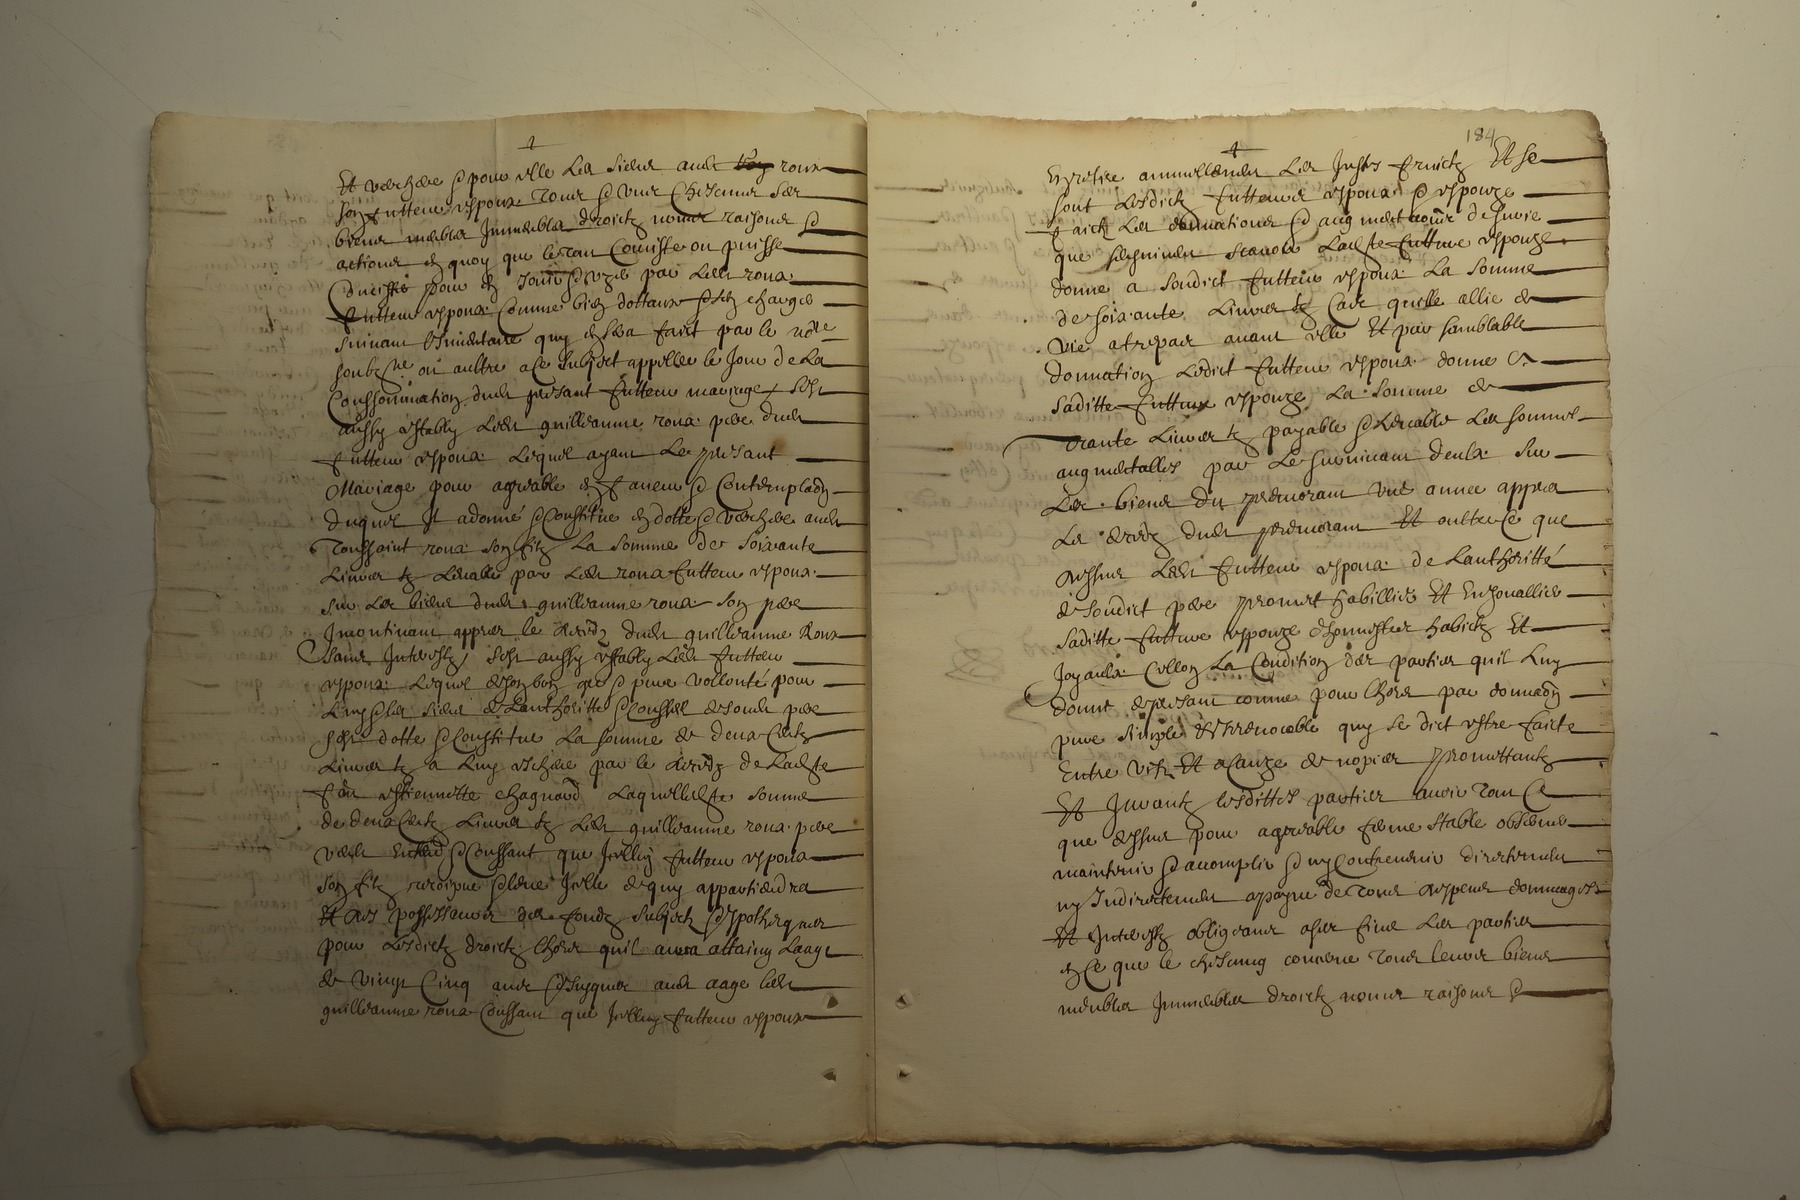 Et verchere & pour elle Les siens audt roux
son futteur espoux tous & uns chescuns ses
biens meubles Immeubles droictz noms raisons &
actions en quoy que le tout Concisste ou puisse
Concisster pour en Jouir & uzer par Ledt roux
futteur espoux Comme bien dottaux & ses charges
suivant Linvientaire quy en sera faict par le notre
soubzne ou aultre a ce subject appelle le Jour de La
Conssommation dudt presant futteur mariage / sest
aussy estably Ledt guilleaume roux pere dudt
futteur espoux Lequel ayant Le presant
Mariage pour agreable en faveur & Contemplaon
duquel Il a donné & Constitue en dotte & verchere audt
Toussaint roux son filz La somme de Soixante
Livres tz Levable par Ledt roux futteur espoux
sur Les biens dudt guilleaume roux son pere
Incontinant appres le deceds dudt guilleaume Roux
Sans Interestz / sest aussy estably Ledt futteur
espoux Lequel de son bon gre & pure vollonté pour
Luy & les siens de Lauthoritte & Conseil de sondt pere
sest dotte & Constitue La somme de deux Centz
Livres tz a Luy eschere par le deceds de Ladte
feu estiennette chagnard Laquelle dte somme
de deux Centz Livres tz Ledt guilleaume roux pere
veult Entend & Conssant que Icelluy futteur espoux
son filz recoipve & leve Icelle de quy appartiendra
Et des possesseurs des fondz subjectz & ypotheques
pour Lesdictz droictz Lhors quil aura attaing Laage
de vingt Cinq ans & Jusques audt aage Ledt
guilleaume roux Conssant que Icelluy futteur espoux
184
En retire annuellement Les Justes fruictz Et se
sont Lesdictz futteurs espoux & espouze
faictz Les donnations & augmentations de survie
que sensuivent scavoir Ladte futture espouze
donne a sondict futteur espoux La somme
de soixante Livres tz Cas quelle allie de
vie a trepas avant elle Et par samblable
donnation Ledict futteur espoux donne a
saditte futture espouze La somme de
trante Livres tz payable & Levable Les sommes
augmentalles par Le survivant deulx sur
Les biens du premorant une annee appres
Le deceds dudt premorant Et oultre Ce que
dessus Ledt futteur espoux de Lauthoritté
de sondict pere promet habillier Et Enjouallier
saditte futture espouze dhonnestes habictz Et
Joyaulx Cellon La Condition des parties quil Luy
donne de presant comme pour Lhors par donnaon
pure simple & Irrevocable quy se dict estre faicte
Entre vifz Et a Cauze de nopces promettantz
Et Jurantz lesdittes parties avoir tout Ce
que dessus pour agreable ferme stable observer
maintenir & accomplir & ny Contrevenir directement
ny Indirectement a payne de tous despens dommages
Et Interestz obligeans a ses fins Les parties
en Ce que le chescung concerne tous leurs biens
meubles Immeubles droictz noms raisons &